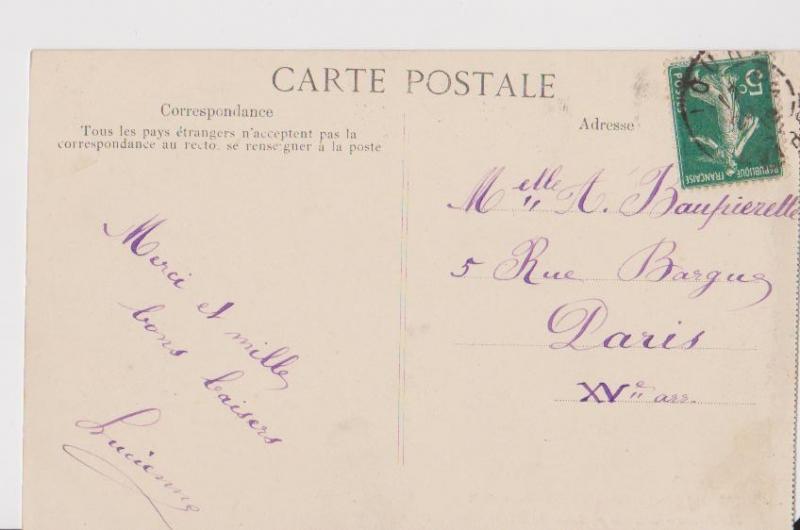 CARTE POSTALE
Correspondance
Tous les pays étrangers n'acceptent pas la
correspondance au recto. se renseigner à la poste
Merci et mille
bons baisers
Lucienne
Adresse
Melle A. Baupierette
5 Rue Bargue
Paris
XVe arr.
5c
POSTES
RÉPUBLIQUE FRANÇAISE